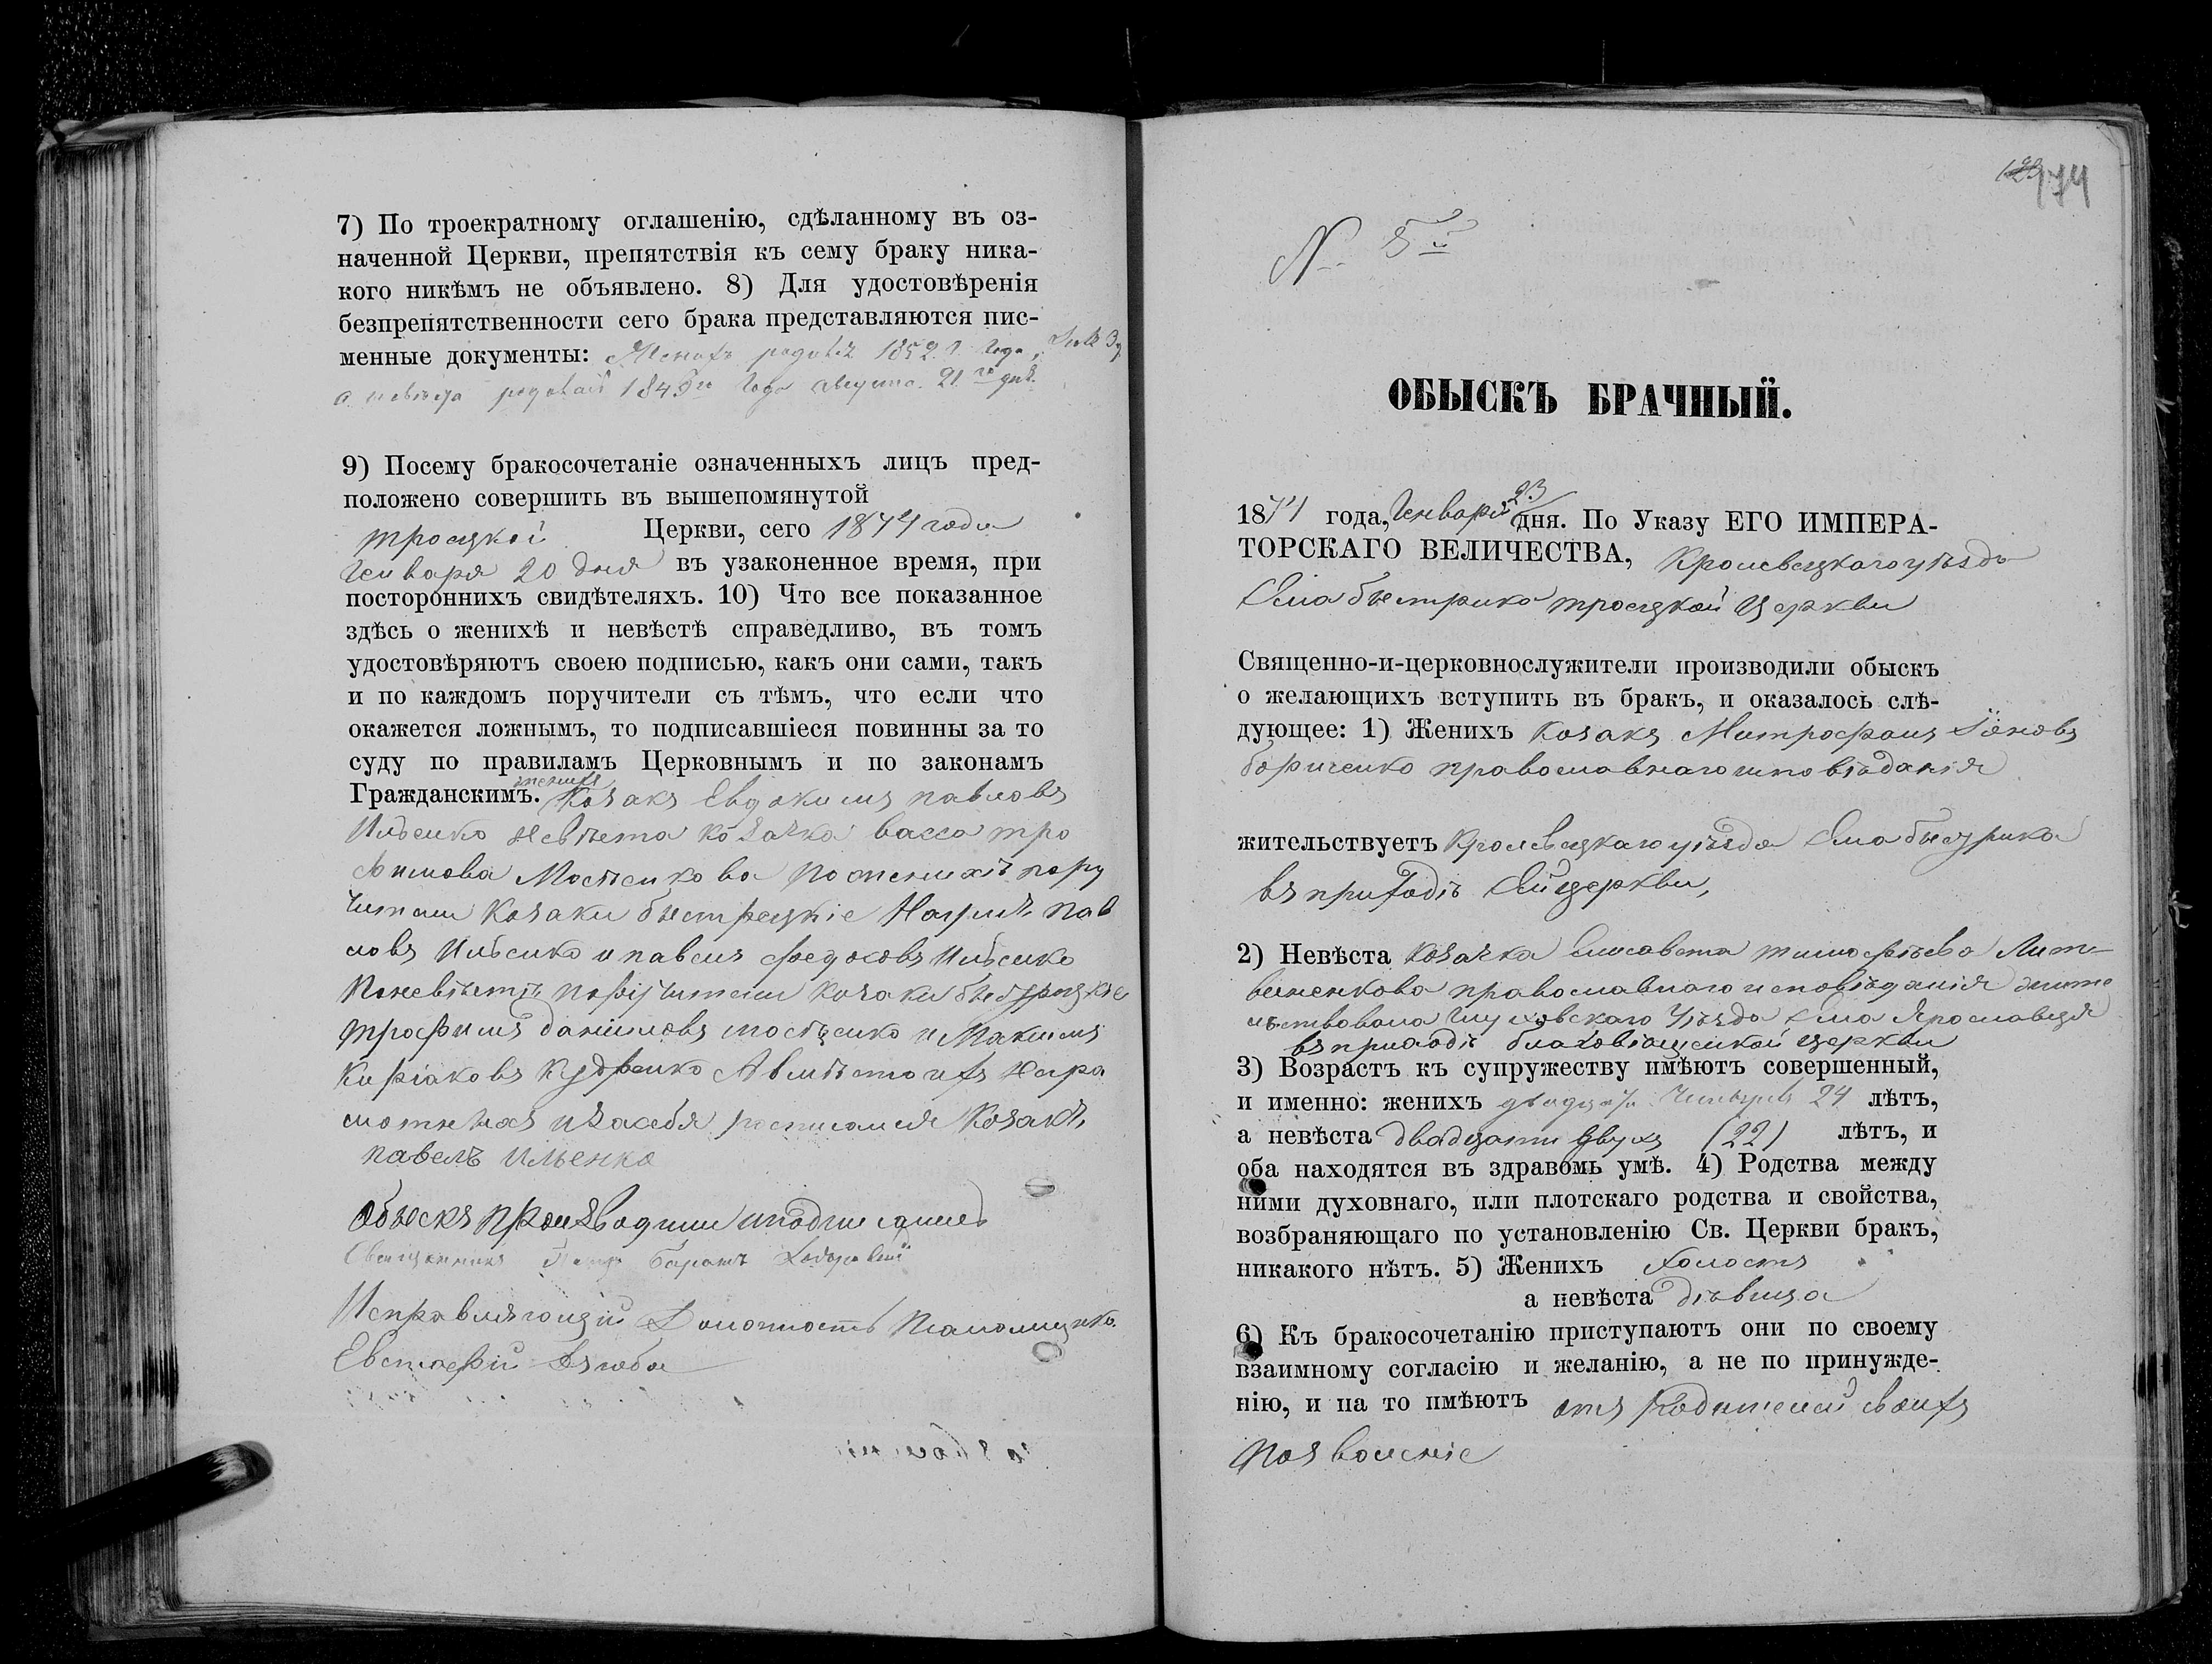 7) По троекратному оглашенію, сдѣланному въ оз-
наченной Церкви, препятствія къ сему браку ника-
кого никѣмъ не объявлено. 8) Для удостовѣренія
безпрепятственности сего брака представляются пис-
менные документы: Женихъ родился 1852 года,
а невѣста 184 года августа 21 го дня
9) Посему бракосочетаніе означенныхъ лицъ пред-
положено совершить въ вышепомянутой
троецкой Церкви, сего 1874 года
Генваря 20 дня въ узаконенное время, при
постороннихъ свидѣтеляхъ. 10) Что все показанное
здѣсь о женихѣ и невѣстѣ справедливо, въ томъ
удостовѣряютъ своею подписью, какъ они сами, такъ
и по каждомъ поручители съ тѣмъ, что если что
окажется ложнымъ, то подписавшіеся повинны за то
суду по правиламъ Церковнымъ и по законамъ
Гражданскимъ. женихъ Козакъ Евдокимъ павловъ
Ильенко невѣста козачка васса тро
фимова по женихѣ пору
чители Козаки быстрецкіе Наумъ пав
ловъ Ильенко и павелъ федоковъ Ильенко
По невѣстѣ поручители козаки быстрецкіе
трофимъ даніиловъ и Макимъ
Киріаковъ Кудренко А вмѣсто ихъ негра
мотныхъ и за себя росписался Козакъ
павелъ Ильенко
Обыскъ производили и подписались
Священникъ
Исправляющій Должность Псаломщика
Евстафій Дзюба
174
№ 5й
ОБЫСКЪ БРАЧНЫЙ.
1874 года, Генваря 23 дня. По Указу ЕГО ИМПЕРА-
ТОРСКАГО ВЕЛИЧЕСТВА, Кролевецкаго уѣзда
Села быстрика троецкой Церкви
Священно-и-церковнослужители производили обыскъ
о желающихъ вступить въ бракъ, и оказалось слѣ-
дующее: 1) Женихъ козакъ Митрофанъ Іоновъ
бориченко православнаго исповѣданія
жительствуетъ Кролевецкаго уѣзда Села быстрика
въ приходѣ Сей церкви,
2) Невѣста козачка Елисавета тимофѣева Лит-
виненкова православнаго исповѣданія жите
льствовала Глуховскаго Уѣзда Села Ярославца
въ приходѣ благовѣщенской церкви
3) Возрастъ къ супружеству имѣютъ совершенный,
и именно: женихъ двадцать Четыре 24 лѣтъ,
а невѣста двадцати двухъ (22) лѣтъ, и
оба находятся въ здравомъ умѣ. 4) Родства между
ними духовнаго, или плотскаго родства и свойства,
возбраняющаго по установленію Св. Церкви бракъ,
никакого нѣтъ. 5) Женихъ холостъ
а невѣста дѣвица
6) Къ бракосочетанію приступаютъ они по своему
взаимному согласію и желанію, а не по принужде-
нію, и на то имѣютъ отъ Родителей своихъ
позволеніе